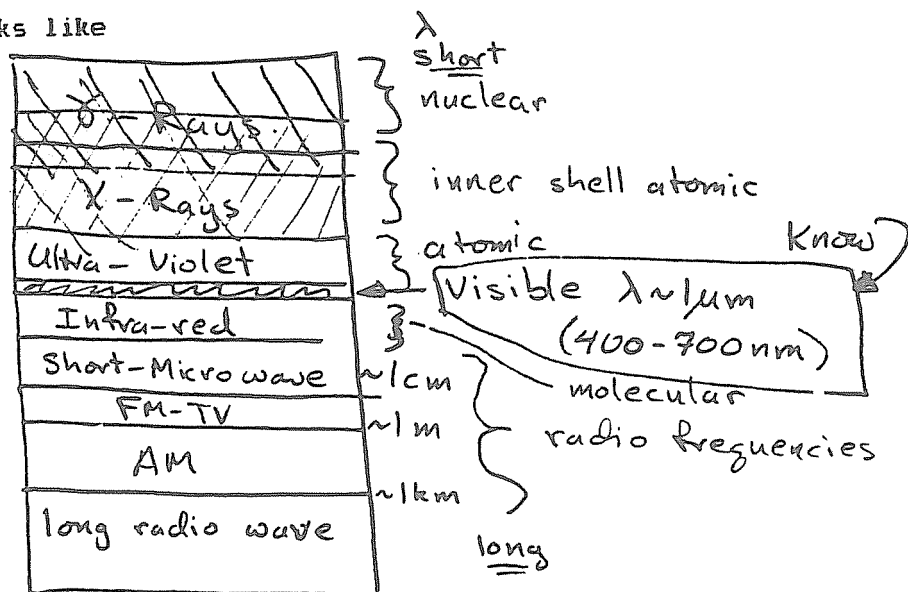 ks like
λ
short
γ - Rays.
nuclear
X - Rays
inner shell atomic
Ultra - Violet
atomic
Know
Visible λ~1μm
(400-700nm)
Infra-red
molecular
Short-Microwave
~1cm
FM-TV
~1m
radio frequencies
AM
~1km
long radio wave
long